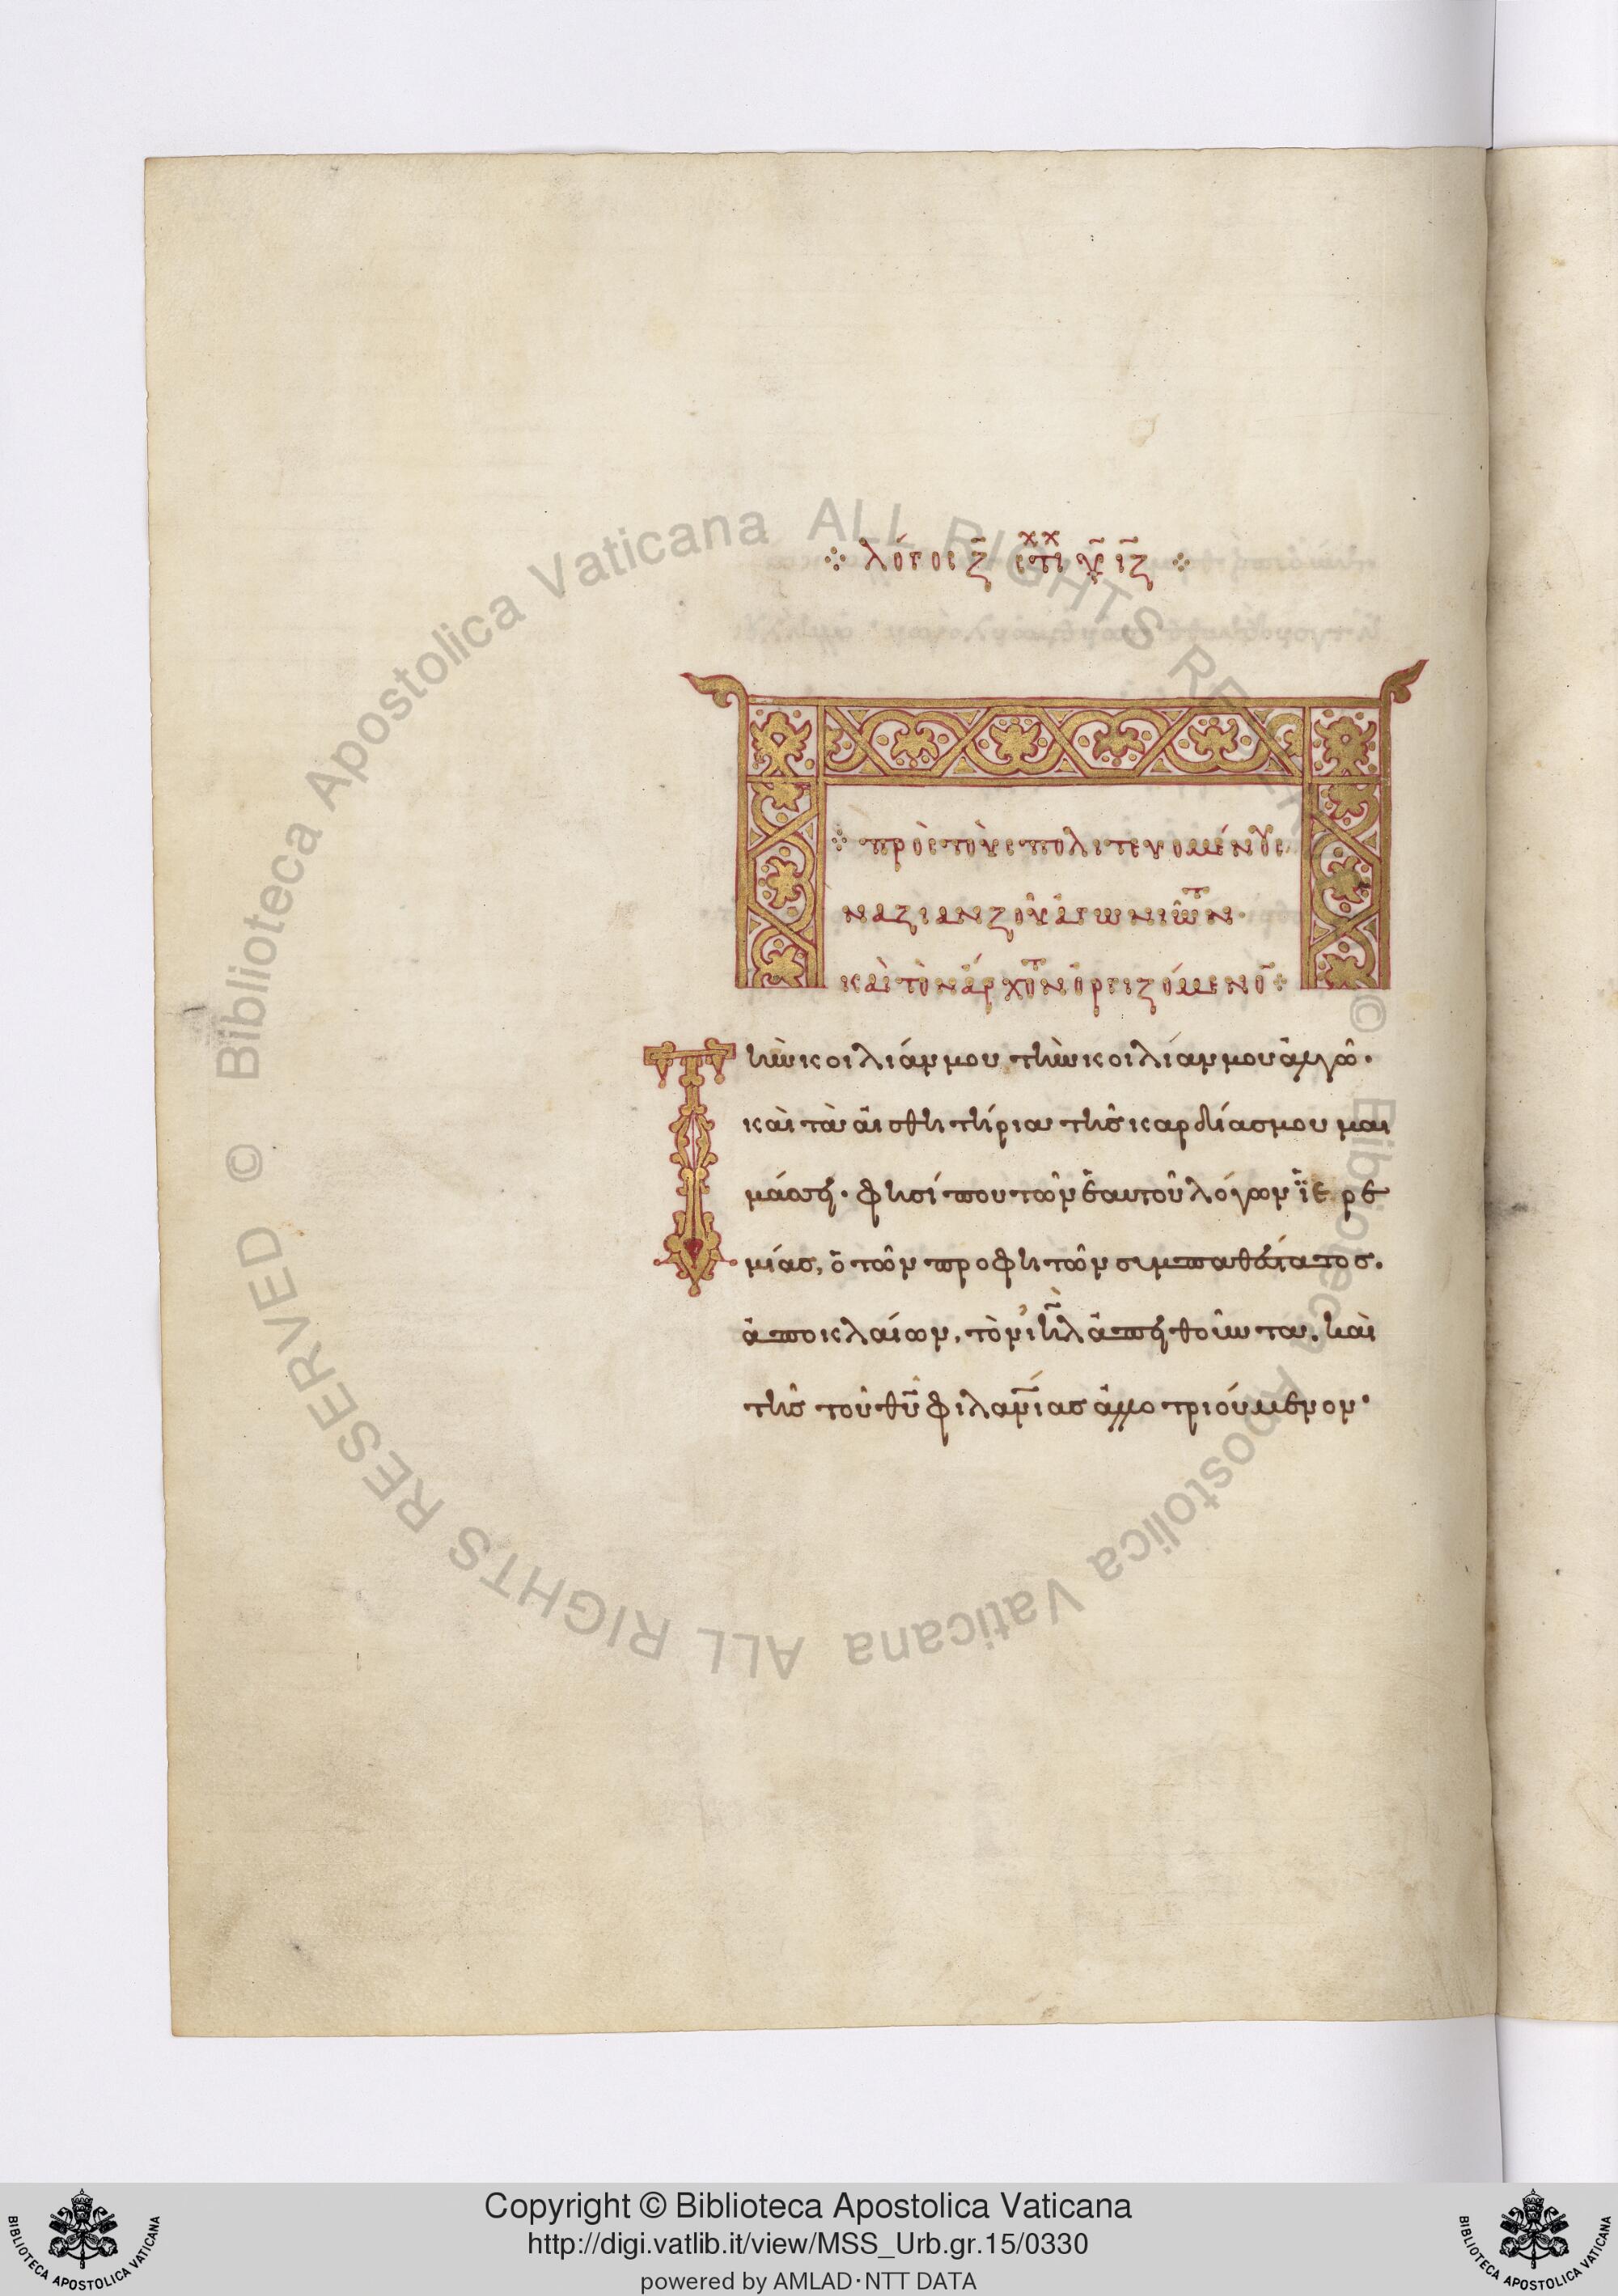 ⁘ λόγος ζ̅ στι ι̅ζ̅ ⁘
⁘ πρὸς τοὺς πολιτευομένους
ναζιανζοῦ ἀγωνιῶντ
καὶ τὸν ἄρχοντ ὀργιζόμενο̅ ⁘
Τὴν κοιλίαν μου τὴν κοιλίαν μου ἀλγῶ·
καὶ τὰ αἰσθητήρια τῆς καρδίας μου μαι
μάσσει· φησί που τῶν ἑαυτοῦ λόγων ἱερε
μίας, ὁ τῶν προφητῶν συμπαθέστατος.
ἀποκλαίων, τὸν ιη̅λ ἀπειθοῦντα. καὶ
τῆς τοῦ θυ̅ φιλανι̅ας ἀλλοτριούμενον·
© Biblioteca Apostolica Vaticana ALL RIGHTS RESERVED
© Biblioteca Apostolica Vaticana ALL RIGHTS RESERVED
Copyright © Biblioteca Apostolica Vaticana
http://digi.vatlib.it/view/MSS_Urb.gr.15/0330
powered by AMLAD·NTT DATA
BIBLIOTECA APOSTOLICA VATICANA
BIBLIOTECA APOSTOLICA VATICANA